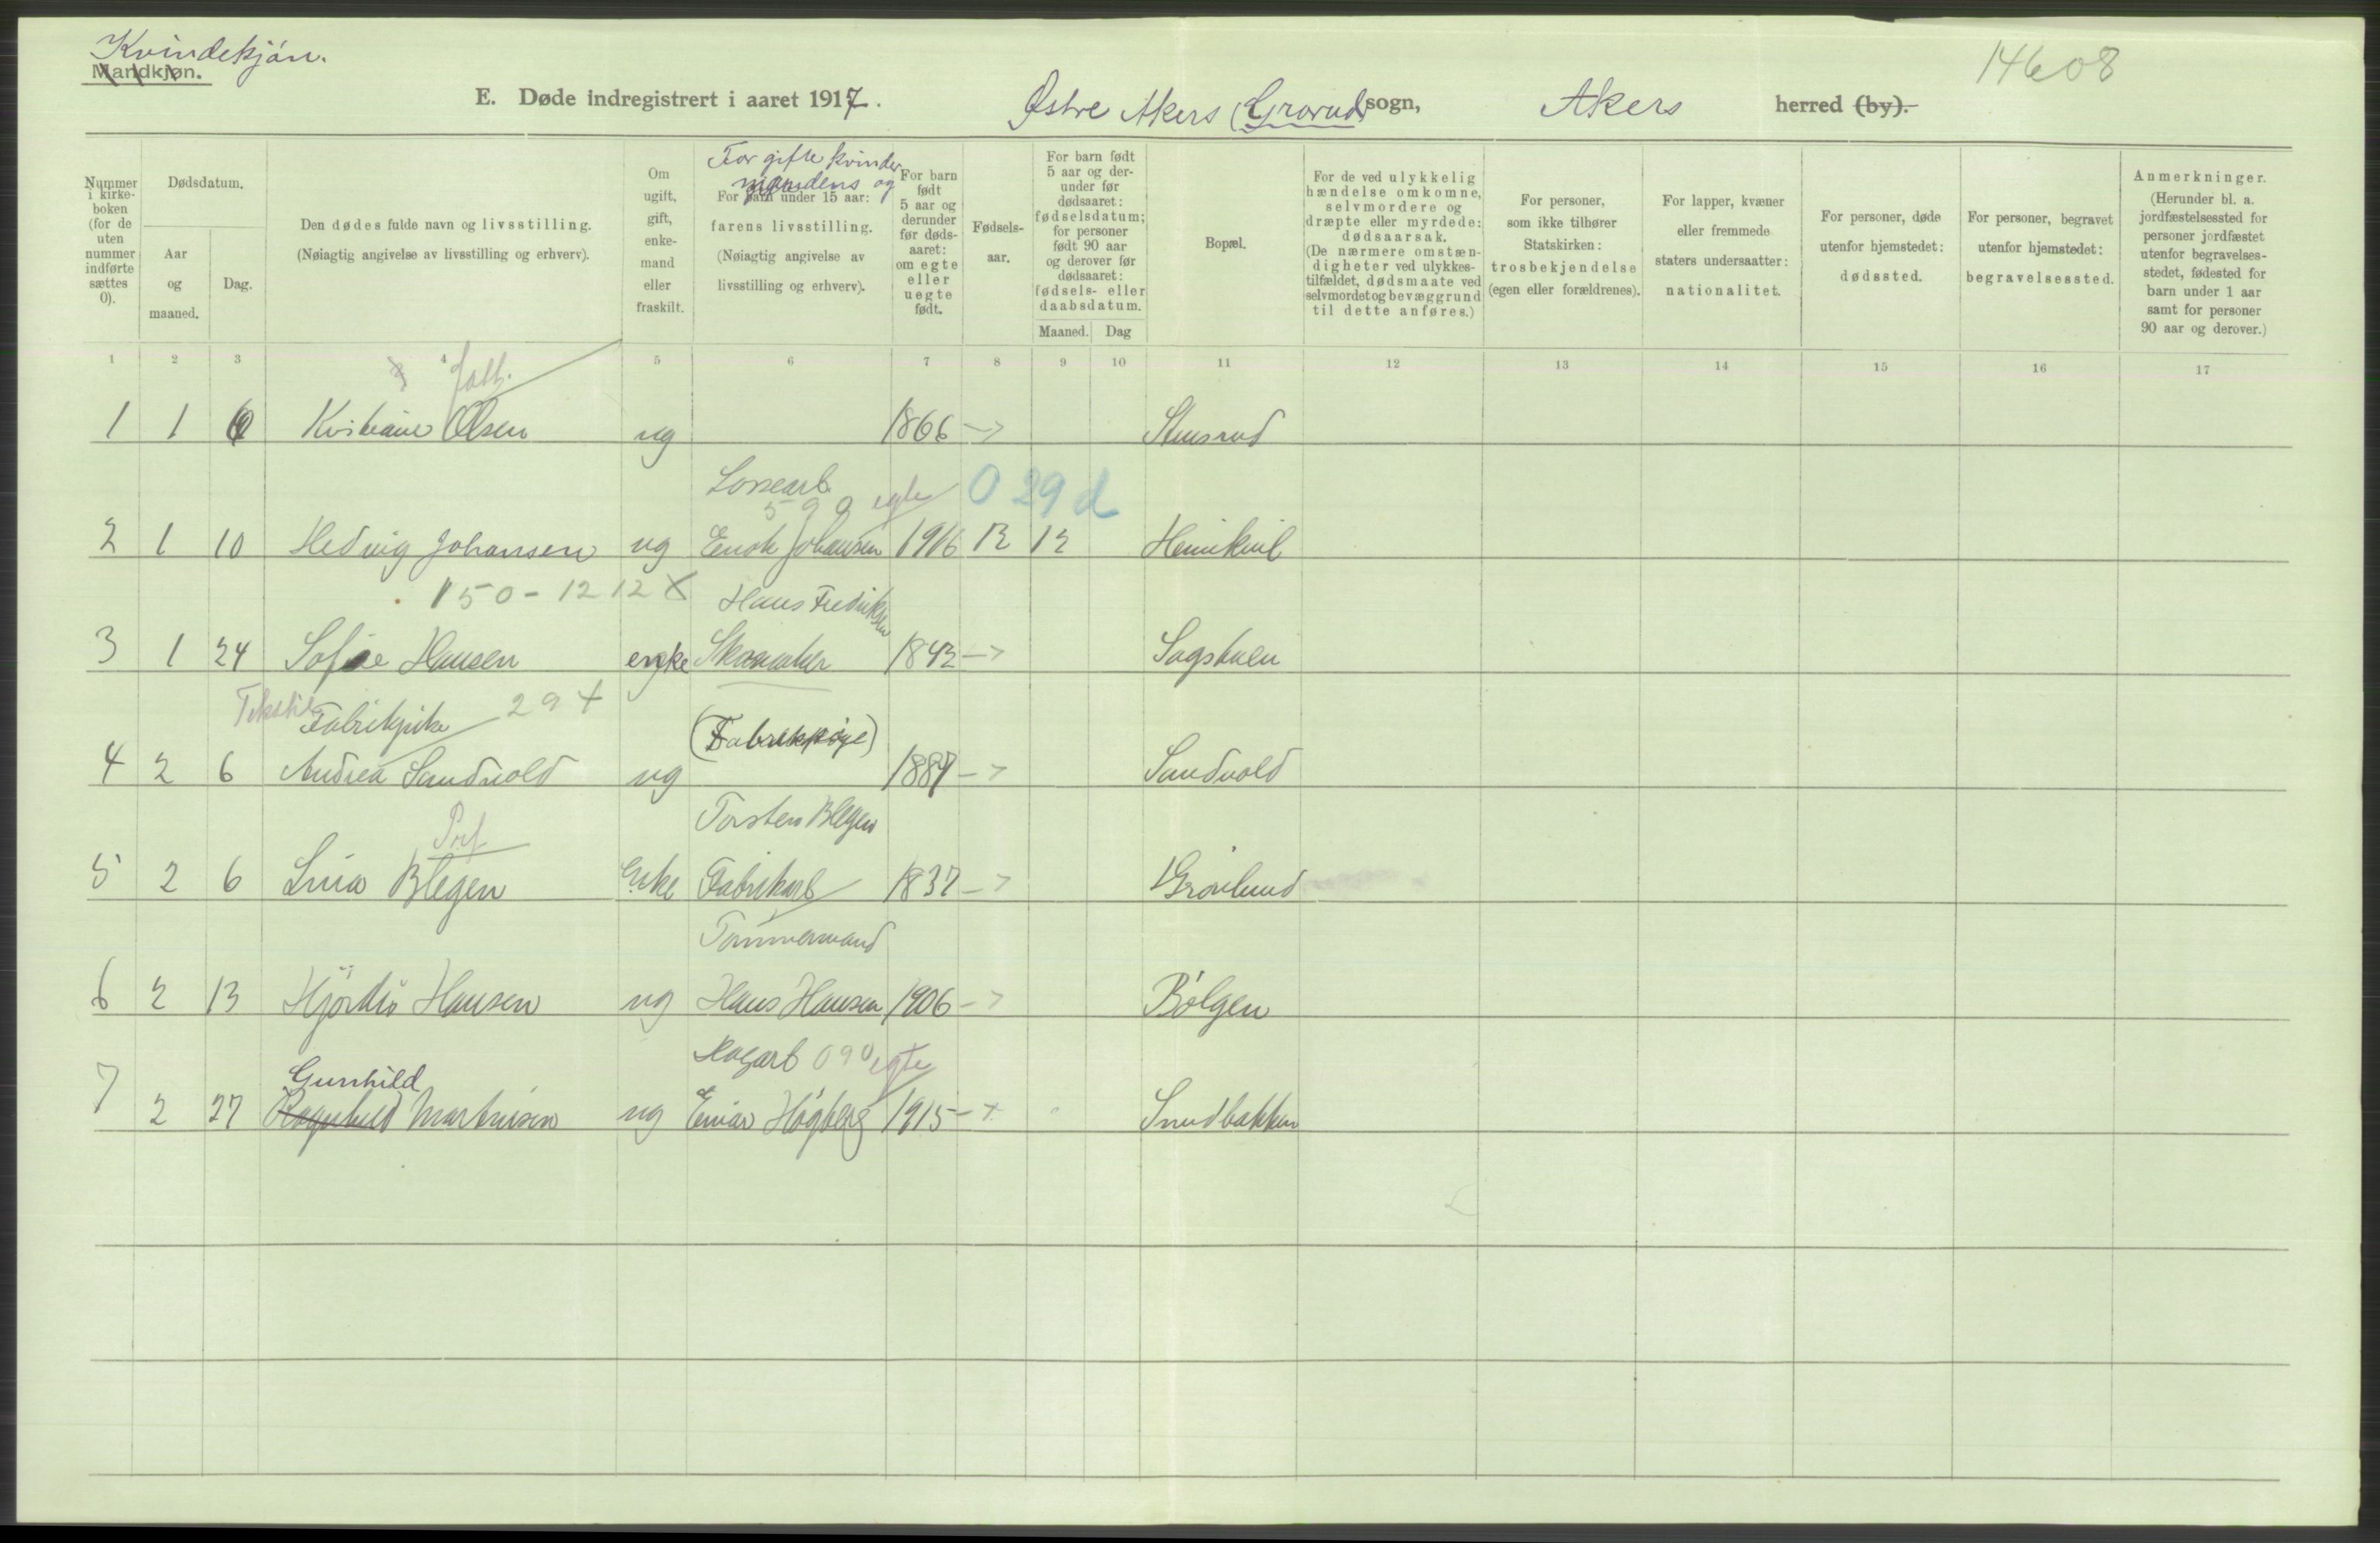 Kvindekjøn.
Mandkjøn.
14608
E. Døde indregistrert i aaret 1917. Østre Akers (Grorud) sogn, Akers herred (by).
Nummer i kirkeboken (for de uten nummer indførte sættes 0).
Dødsdatum.
Aar og maaned.
Dag.
Den dødes fulde navn og livsstilling.
(Nøiagtig angivelse av livsstilling og erhverv).
Om ugift, gift, enkemand eller fraskilt.
For gifte kvinder mandens og
For barn under 15 aar:
farens livsstilling.
(Nøiagtig angivelse av livsstilling og erhverv).
For barn født 5 aar og derunder før dødsaaret: om egte eller uegte født.
Fødselsaar.
For barn født 5 aar og derunder før dødsaaret: fødselsdatum; for personer født 90 aar og derover før dødsaaret: fødsels- eller daabsdatum.
Maaned. Dag
Bopæl.
For de ved ulykkelig hændelse omkomne, selvmordere og dræpte eller myrdede: dødsaarsak.
(De nærmere omstændigheter ved ulykkestilfældet, dødsmaate ved selvmordet og bevæggrund til dette anføres.)
For personer, som ikke tilhører Statskirken: trosbekjendelse (egen eller forældrenes).
For lapper, kvæner eller fremmede staters undersaatter: nationalitet.
For personer, døde utenfor hjemstedet: dødssted.
For personer, begravet utenfor hjemstedet: begravelsessted.
Anmerkninger.
(Herunder bl. a. jordfæstelsessted for personer jordfæstet utenfor begravelsesstedet, fødested for barn under 1 aar samt for personer 90 aar og derover.)
1 2 3 4 5 6 7 8 9 10 11 12 13 14 15 16 17
1 1 6 Kristiane Olsen ug 1866 Stensrud
Lossearb. egte 0 29 d
5 9 9
2 1 10 Hedvig Johansen ug Enok Johansen 1916 12 12
150 - 12 12 X Hans Fredriksen
3 1 24 Sofie Hansen enke Skomaker 1842 Sagstuen
Tekstil Fabrikpike 29 + (Fabrikpige)
4 2 6 Andrea Sandvold ug 1887 Sandvold
Torsten Blegen
5 2 6 Lina Blegen Enke Fabrikarb 1837 Grønlund
Tømmermand
6 2 13 Hjørdis Hansen ug Hans Hansen 1906 Bølgen
Gunhild 090 egte
7 2 27 Ragnhild Martinsen ug Einar Høgberg 1915 Snudbakken